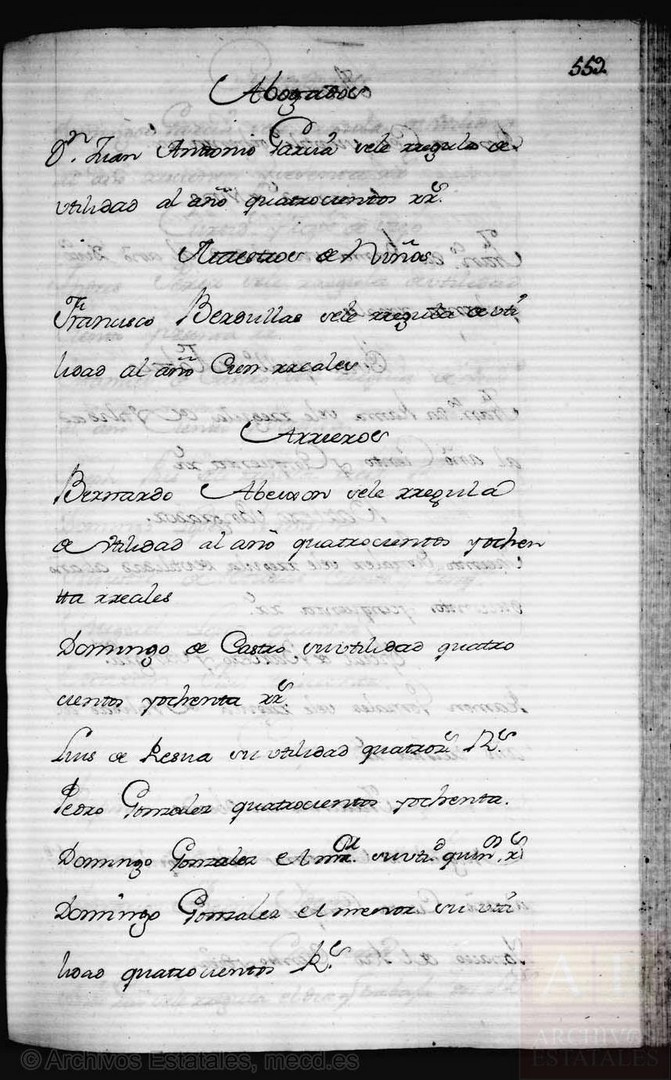 552
Abogados
Dn. Juan Antonio Garcia sele rregula de
utilidad al año quatrocientos rrs.
Maestros de Niños
Francisco Berdullas sele rregula de uti
lidad al año Cien rreales
Arrieros
Bernardo Abeixon sele rregula
de utilidad al año quatrocientos yochen
tta rreales
Domingo de Castro suutilidad quatro
cientos yochenta rrs.
Luis de Resua su utilidad quatrozs. Rs.
Pedro Gonzalez quatrocientos yochenta.
Domingo Gonzalez el mor. suutd. quins. rs
Domingo Gonzalez el menor su uti
lidad quatrocientos Rs.
© Archivos Estatales, mecd.es
AE
ARCHIVOS
ESTATALES